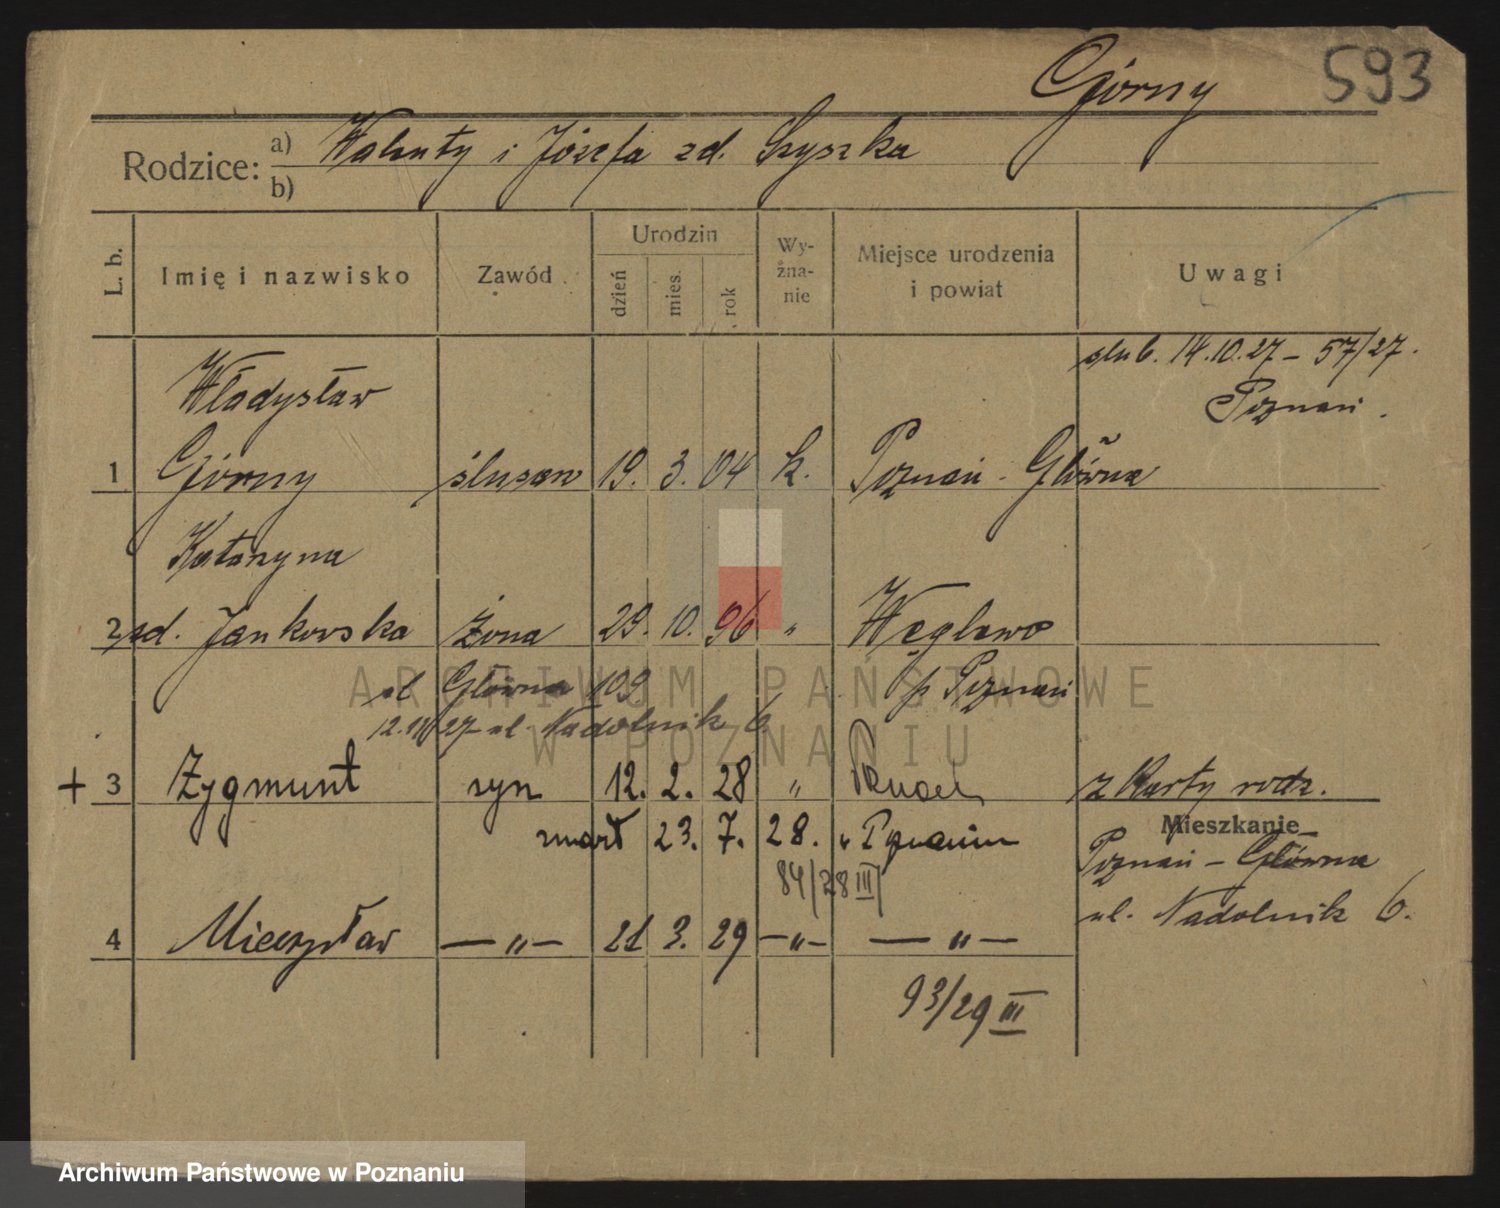 Górny 593
Rodzice: a) Walenty i Józefa zd. Szyszka
b)
L. b. Imię i nazwisko Zawód Urodzin dzień mies. rok Wy-zna-nie Miejsce urodzenia i powiat Uwagi
ślub. 14.10.27 – 57/27.
Władysław Poznań.
1 Górny ślusarz 19. 3. 04 k. Poznań - Główna
Katarzyna
2 zd. Jankowska żona 29. 10. 96 " Węglewo
ul Główna 109 p. Poznań
27 ul. Nadolnik 6
+ 3 Zygmunt syn 12. 2. 28 " Poznań z Karty rodz.
zmarł 23. 7. 28. w Poznaniu Mieszkanie
84/28 III Poznań – Główna
ul. Nadolnik 6.
4 Mieczysław — " — 21 3. 29 — " — — " —
93/29 III
ARCHIWUM PAŃSTWOWE
W POZNANIU
Archiwum Państwowe w Poznaniu